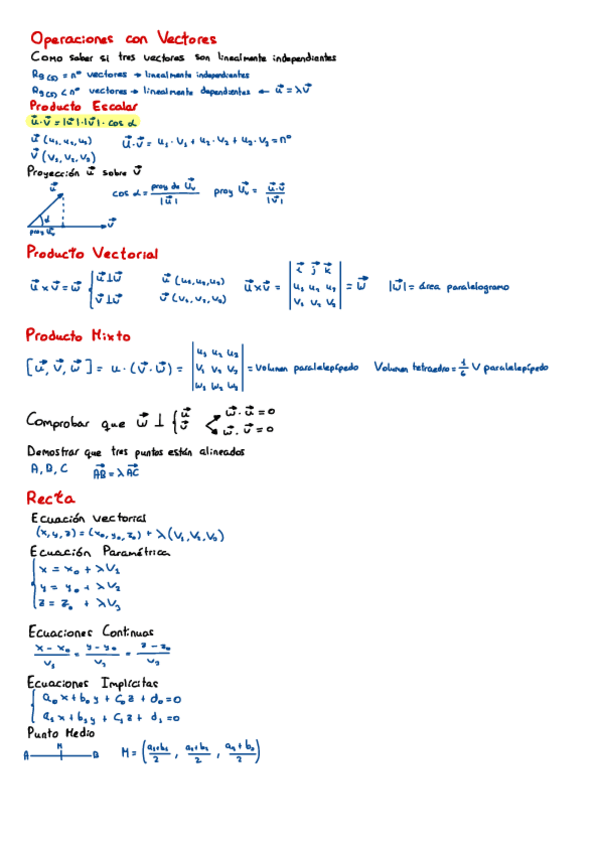 Operaciones con Vectores
Como saber si tres vectores son linealmente independiantes
Rg(S) = nº vectores → linealmente independientes
Rg(S) < nº vectores → linealmente dependientes ← u⃗ = λv⃗
Producto Escalar
u⃗·v⃗ = |u⃗|·|v⃗|· cos α
u⃗ (u₁, u₂, u₃) u⃗·v⃗ = u₁·v₁ + u₂·v₂ + u₃·v₃ = nº
v⃗ (v₁, v₂, v₃)
Proyección u⃗ sobre v⃗
u⃗ α v⃗ proy u⃗ᵥ
cos α = proy de u⃗ᵥ / |u⃗| proy u⃗ᵥ = u⃗·v⃗ / |v⃗|
Producto Vectorial
u⃗ x v⃗ = w⃗ { u⃗ ⊥ u⃗ u⃗ (u₁, u₂, u₃) u⃗ x v⃗ = | i⃗ j⃗ k⃗ | = w⃗ |w⃗| = área paralelogramo
v⃗ ⊥ u⃗ v⃗ (v₁, v₂, v₃) | u₁ u₂ u₃ |
| v₁ v₂ v₃ |
Producto Mixto
[u⃗, v⃗, w⃗] = u·(v⃗·w⃗) = | u₁ u₂ u₃ | = Volumen paralelepípedo Volumen tetraedro = 1/6 V paralelepípedo
| v₁ v₂ v₃ |
| w₁ w₂ w₃ |
Comprobar que w⃗ ⊥ { u⃗ < w⃗·u⃗ = 0
v⃗ w⃗·v⃗ = 0
Demostrar que tres puntos están alineados
A, B, C AB⃗ = λ AC⃗
Recta
Ecuación vectorial
(x, y, z) = (x₀, y₀, z₀) + λ (v₁, v₂, v₃)
Ecuación Paramétrica
x = x₀ + λv₁
y = y₀ + λv₂
z = z₀ + λv₃
Ecuaciones Continuas
x - x₀ / v₁ = y - y₀ / v₂ = z - z₀ / v₃
Ecuaciones Implícitas
a₀x + b₀y + c₀z + d₀ = 0
a₁x + b₁y + c₁z + d₁ = 0
Punto Medio
A M B M = (a₁+b₁ / 2 , a₂+b₂ / 2 , a₃+b₃ / 2)